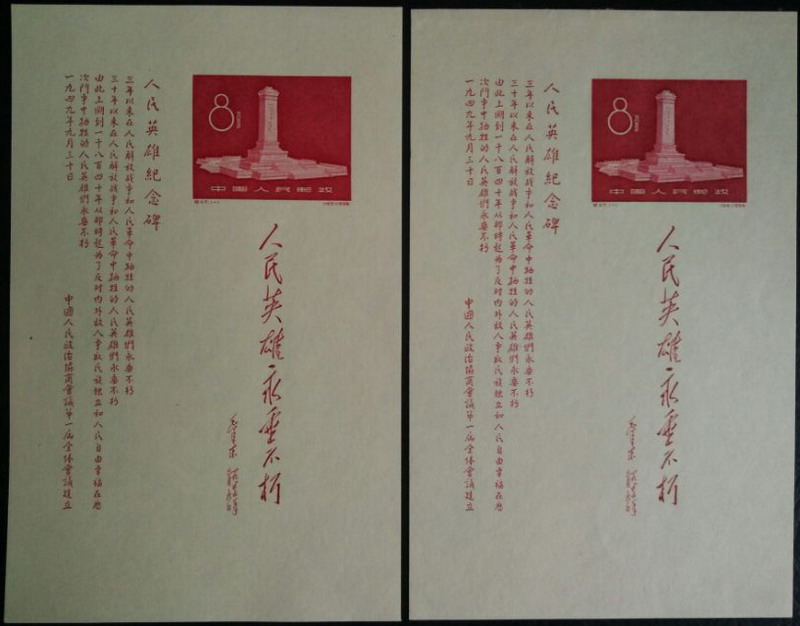 8
中國人民郵政
人民英雄永垂不朽
毛澤东
人民英雄紀念碑
三年以来在人民解放战争和人民革命中牺牲的人民英雄們永垂不朽
三十年以来在人民解放战争和人民革命中牺牲的人民英雄們永垂不朽
由此上溯到一千八百四十年从那時起为了反对内外敌人争取民族独立和人民自由幸福在歷
次鬥争中牺牲的人民英雄們永垂不朽
一九四九年九月三十日
中國人民政治協商會議第一屆全体會議建立
8
中國人民郵政
人民英雄永垂不朽
毛澤东
人民英雄紀念碑
三年以来在人民解放战争和人民革命中牺牲的人民英雄們永垂不朽
三十年以来在人民解放战争和人民革命中牺牲的人民英雄們永垂不朽
由此上溯到一千八百四十年从那時起为了反对内外敌人争取民族独立和人民自由幸福在歷
次鬥争中牺牲的人民英雄們永垂不朽
一九四九年九月三十日
中國人民政治協商會議第一屆全体會議建立